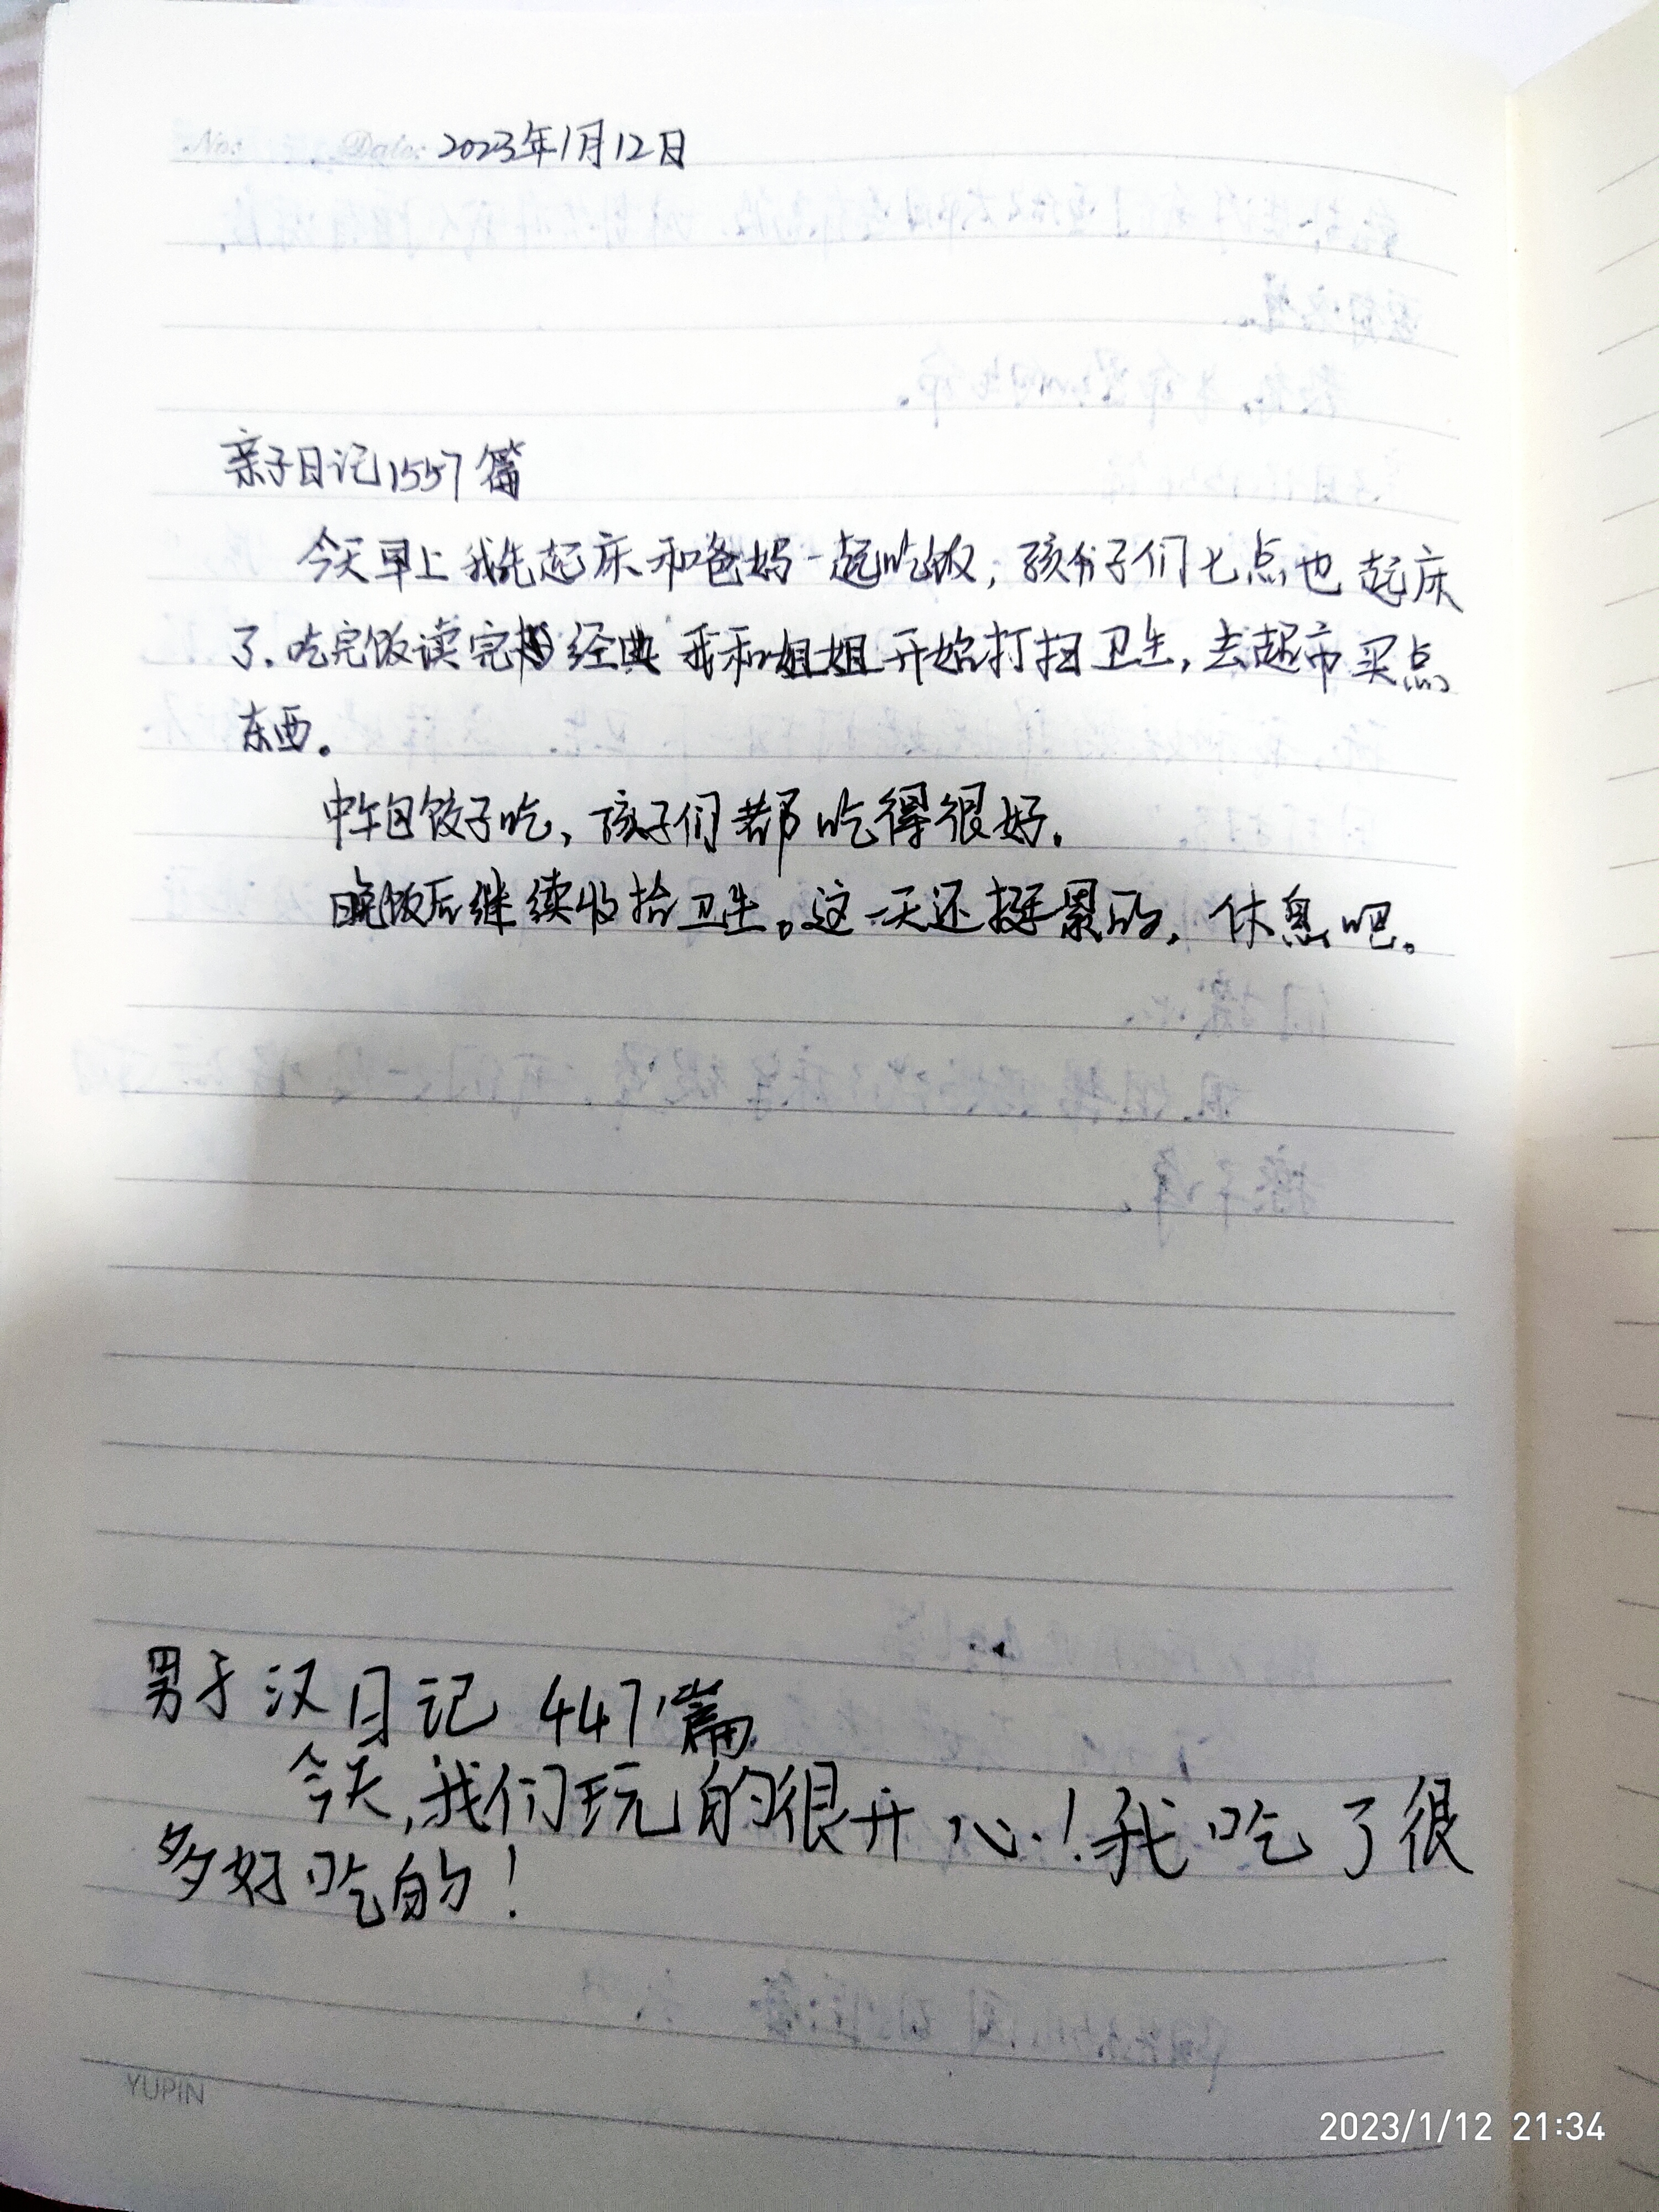 No: Date: 2023年1月12日
亲子日记1557篇
今天早上我先起床和爸妈一起吃饭，孩子们七点也起床
了.吃完饭读完经典我和姐姐开始打扫卫生,去超市买点
东西。
中午包饺子吃,孩子们都吃得很好.
晚饭后继续收拾卫生。这一天还挺累的,休息吧。
男子汉日记 447篇
今天,我们玩的很开心!我吃了很
多好吃的!
YUPIN
2023/1/12 21:34